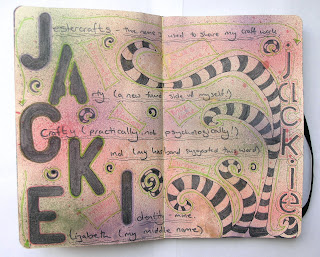 Jestercrafts - the name I used to share my craft work
Arty (a new side of myself!)
Crafty (practically, not psychologically!)
Kind (my husband suggested this word)
Identity - mine.
Elizabeth (my middle name)
jackie